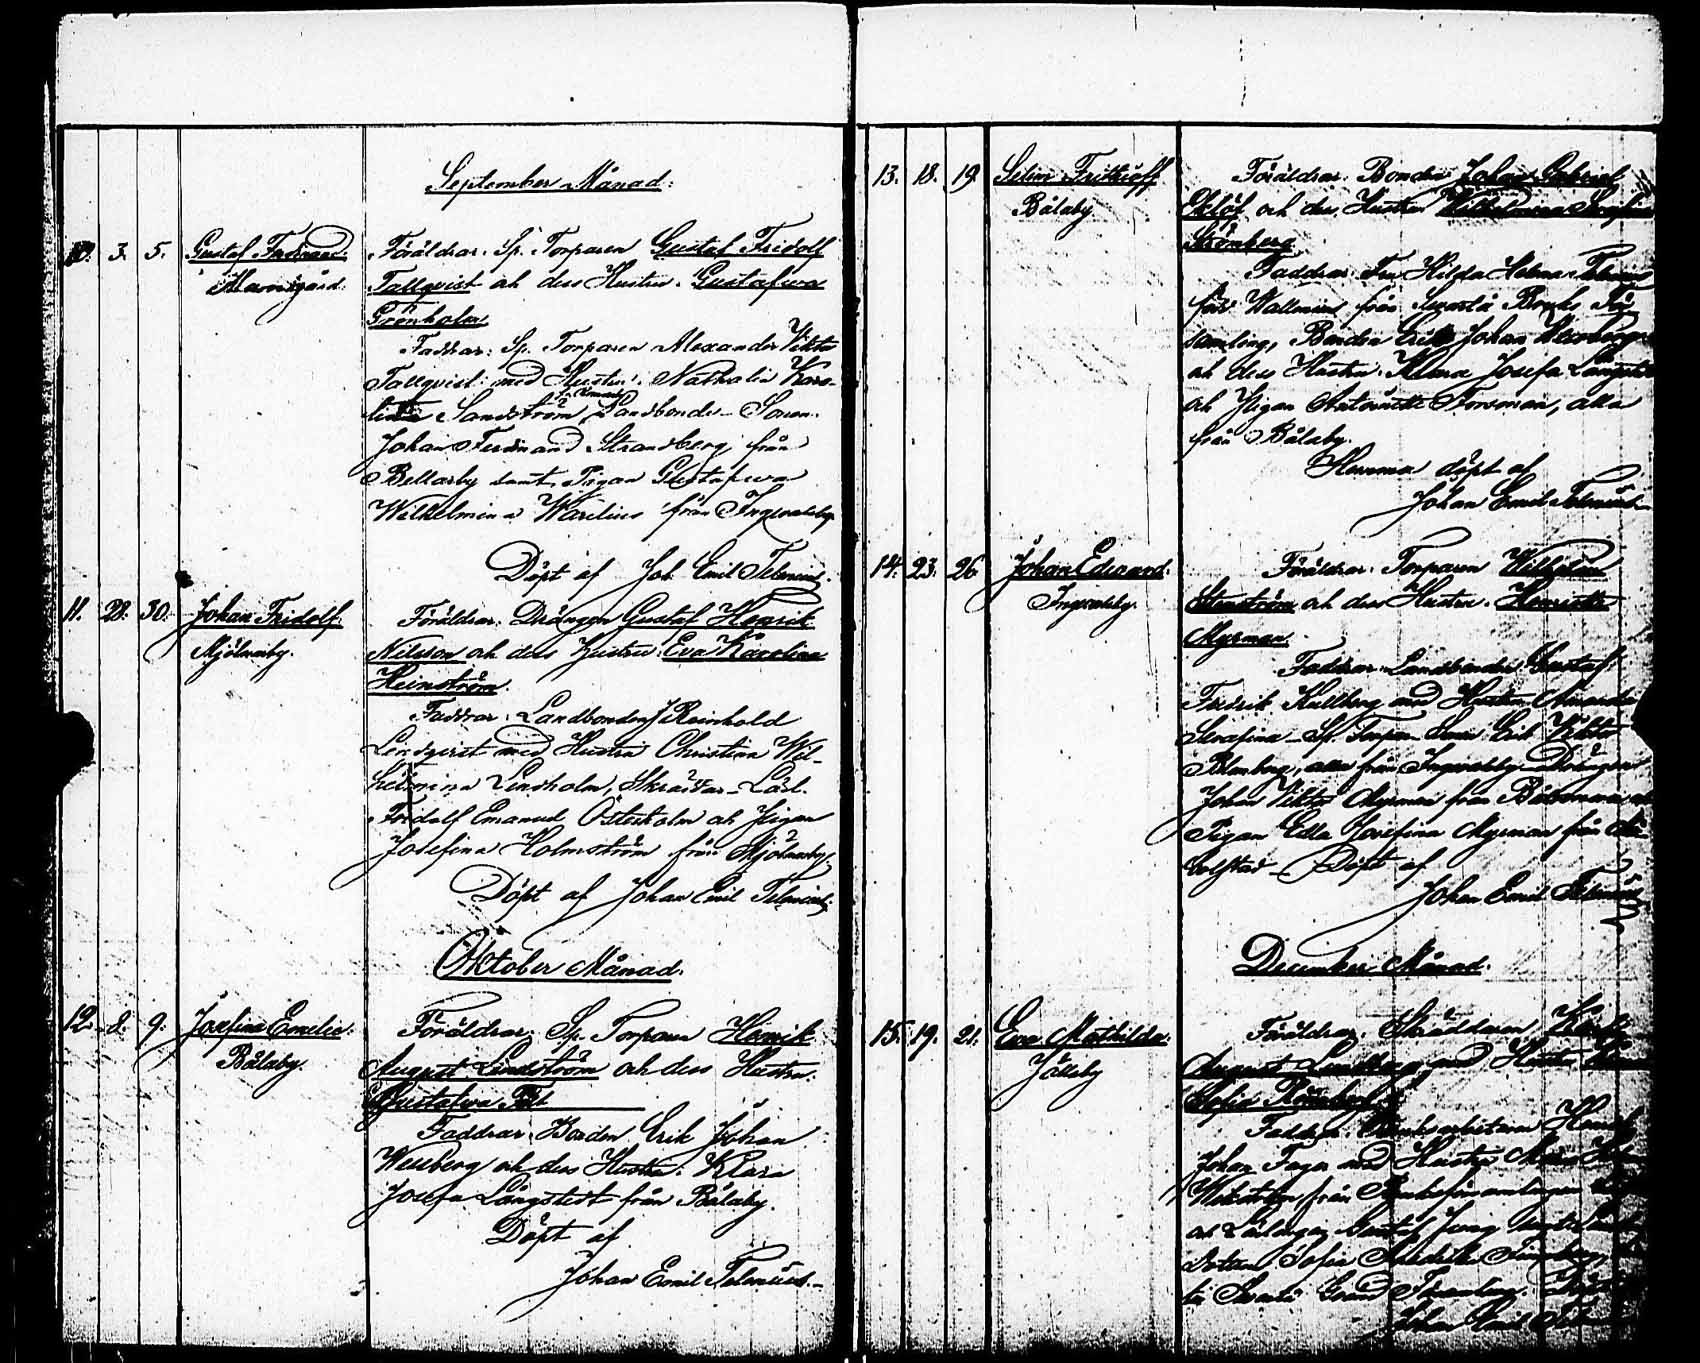 September Månad:
10. 3. 5. Gustaf Ferdinand. Föräldrar. Sp. Torparen Gustaf Fridolf
Tallqvist och dess Hustru. Gustafwa
Grönholm
Faddrar: Sp. Torparen Alexander Viktor
Tallqvist med Hustru. Nathalia Karo-
lina Sandström, Landbonde-Sonen.
Johan Ferdinand Strandberg från
Bellarby samt Pigan Gustafwa
Wilhelmina Warilius från Ingwalsby.
Döpt af Joh. Emil Telenius.
11. 28. 30. Johan Fridolf. Föräldrar. Drängen Gustaf Henrik
Mjölnaby. Nilsson och dess Hustru Eva Karolina
Heinström.
Faddrar. Landbonden J Reinhold
Lindqvist med Hustru Christina Wil-
helmina Lindholm, Skräddar-Lärl.
Fridolf Emanuel Österholm och Pigan
Josefina Holmström från Mjölnaby.
Döpt af Johan Emil Telenius.
Oktober Månad.
12. 8. 9. Josefina Emelie. Föräldrar. Sp. Torparen Henrik
Bålaby. August Lindström och dess Hustru.
Gustafva
Faddrar. Bonden Erik Johan
Wessberg och dess Hustru. Klara
Josefa Långstedt från Bålaby.
Döpt af
Johan Emil Telenius.
13. 18. 19. Selim Frithioff Föräldrar. Bonden Johan Gabriel
Bålaby. Eklöf och dess Hustru Wilhelmina Serafina
Strömberg
Faddrar. Fru Hilda Helena Telenius
född Wallenius från Svartå Bruks För-
samling, Bonden Erik Johan Wessberg
och dess Hustru. Klara Josefa Långstedt
och Pigan Antoinette Forsman, alla
från Bålaby.
Hemma döpt af
Johan Emil Telenius
14. 23. 26. Johan Edvard. Föräldrar. Torparen Wilhelm
Ingwalsby. Stenström och dess Hustru. Henriette
Myrman.
Faddrar. Landbonden Gustaf
Fredrik Kullberg med Hustru Amanda
Serafina Sp. Torpare Erik Viktor
Blomberg, alla från Ingwalsby Drängen
Johan Viktor Myrman från
Pigan Edla Josefina Myrman från
Döpt af
Johan Emil Telenius
December Månad.
15. 19. 21. Eva Mathilda. Föräldrar. Skräddaren Karl
Jälleby August Lindberg med Hustru
Sofia
Faddrar. Bruksarbetaren Henrik
Johan Fager med Hustru Maria
från Bruksförsamlingen
och Gustaf
Sofia
Svartå
Johan Emil